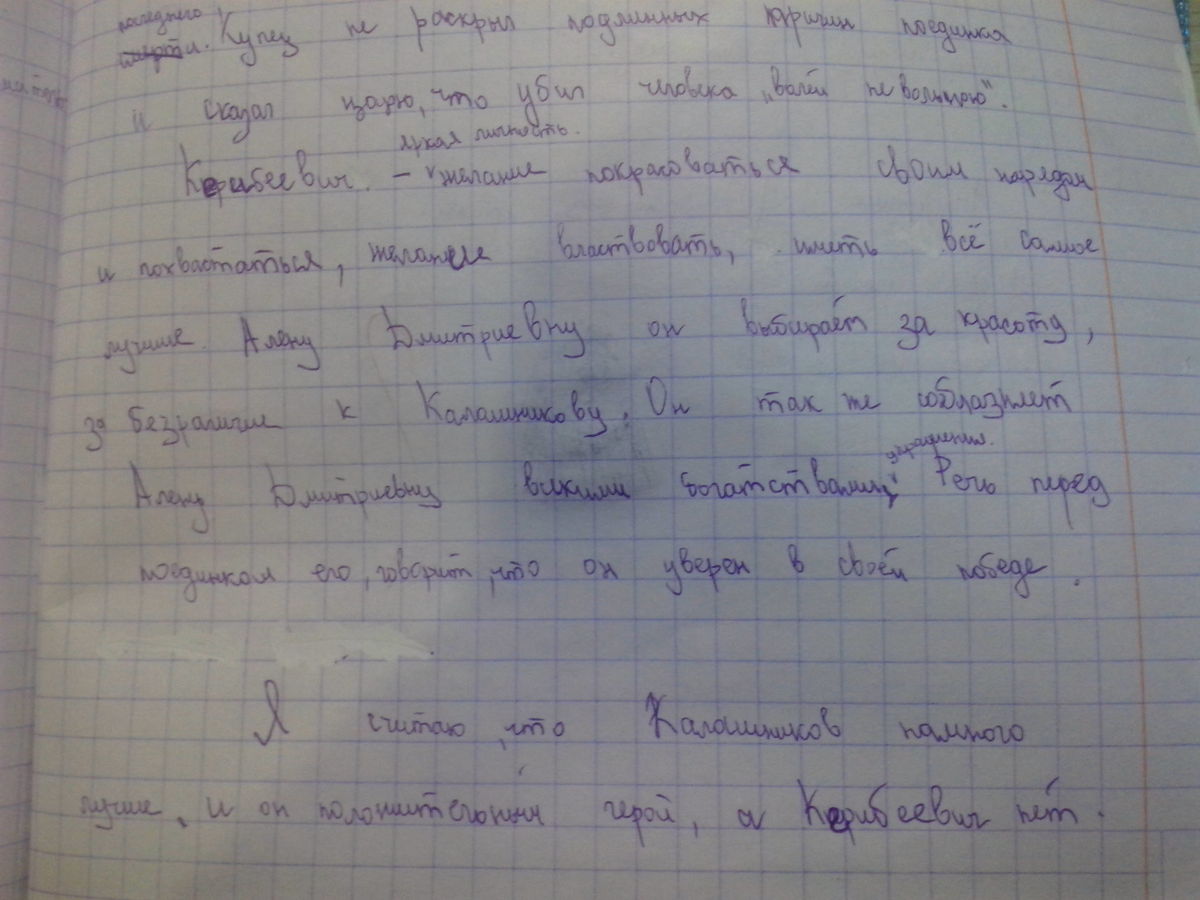 последнего
смерти. Купец не раскрыл подлинных причин поединка
и сказал царю, что убил человека „волей невольною".
яркая личность.
Керибеевич. – желание покрасоваться своим нарядом
и похвастаться, желание властвовать, иметь всё самое
лучшее. Алену Дмитриевну он выбирает за красоту,
за безразличие к Калашникову. Он так же соблазняет
украшения.
Алену Дмитриевну всякими богатствами, Речь перед
поединком его, говорит, что он уверен в своей победе.
Я считаю, что Калашников намного
лучше, и он положительный герой, а Керибеевич нет.